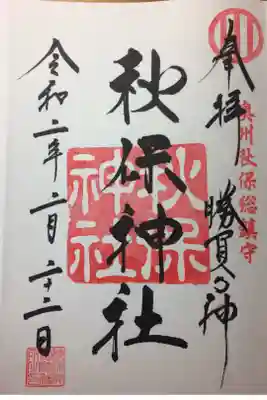 奉拝 勝負の神
奥州秋保総鎮守
秋保神社
秋保神社
令和二年二月二十二日